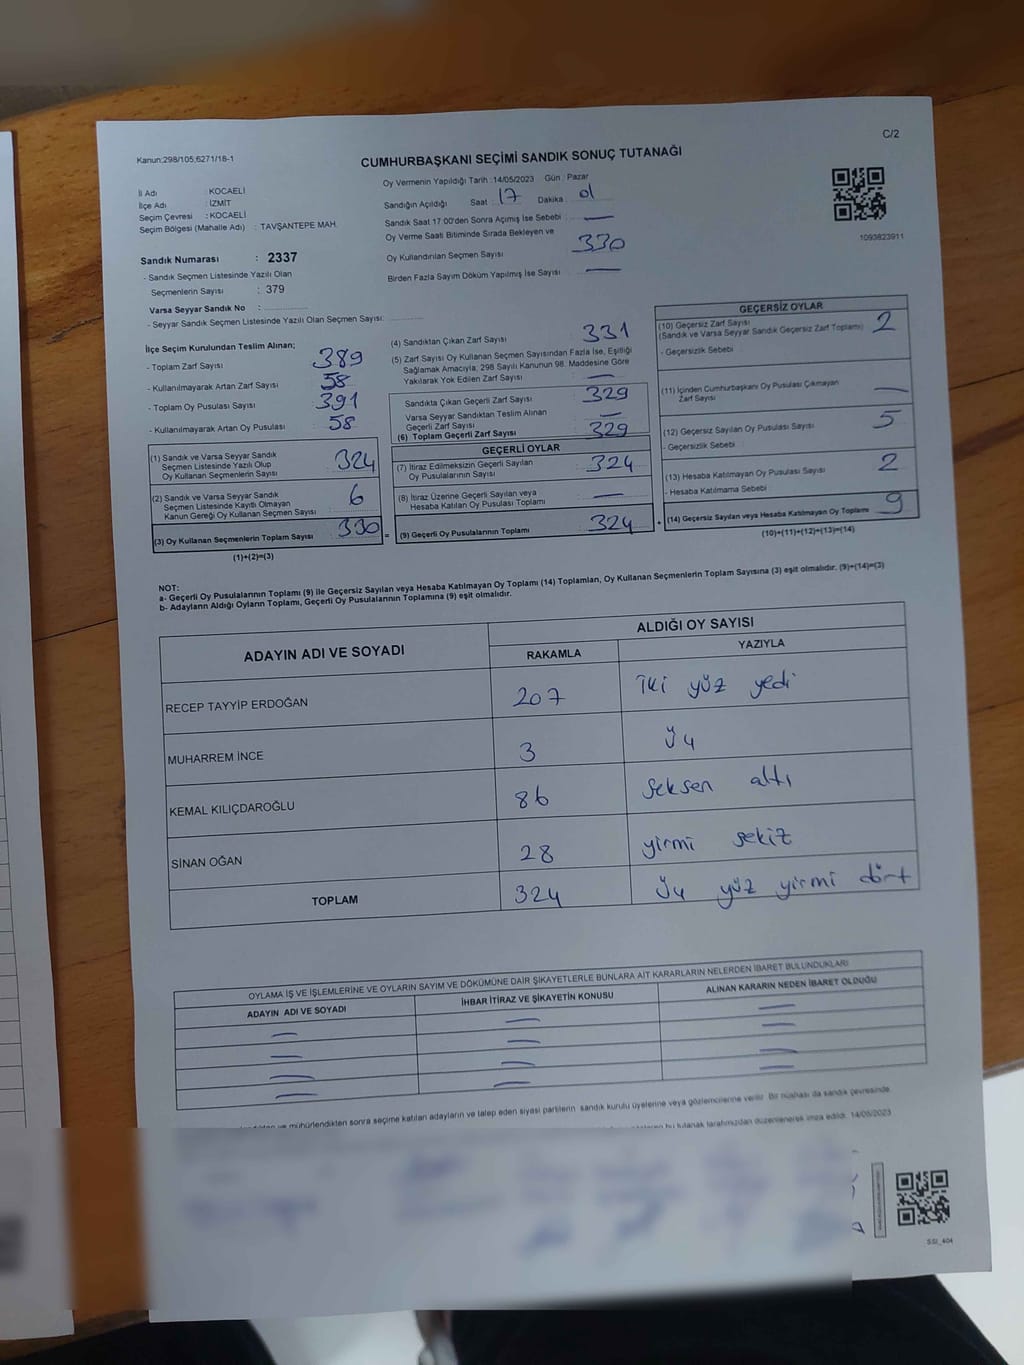 C/2
Kanun:298/105;6271/18-1
CUMHURBAŞKANI SEÇİMİ SANDIK SONUÇ TUTANAĞI
İl Adı : KOCAELİ
İlçe Adı : İZMİT
Seçim Çevresi : KOCAELİ
Seçim Bölgesi (Mahalle Adı) : TAVŞANTEPE MAH.
Oy Vermenin Yapıldığı Tarih :14/05/2023 Gün : Pazar
Sandığın Açıldığı Saat : 17 Dakika
Sandık Saat 17:00'den Sonra Açımış İse Sebebi —
Oy Verme Saati Bitiminde Sırada Bekleyen ve
Oy Kullandırılan Seçmen Sayısı 330
Birden Fazla Sayım Döküm Yapılmış İse Sayısı —
1093823911
Sandık Numarası : 2337
- Sandık Seçmen Listesinde Yazılı Olan
Seçmenlerin Sayısı : 379
Varsa Seyyar Sandık No :
- Seyyar Sandık Seçmen Listesinde Yazılı Olan Seçmen Sayısı:
İlçe Seçim Kurulundan Teslim Alınan;
- Toplam Zarf Sayısı 389
- Kullanılmayarak Artan Zarf Sayısı 58
- Toplam Oy Pusulası Sayısı 391
- Kullanılmayarak Artan Oy Pusulası 58
(1) Sandık ve Varsa Seyyar Sandık
Seçmen Listesinde Yazılı Olup
Oy Kullanan Seçmenlerin Sayısı 324
(2) Sandık ve Varsa Seyyar Sandık
Seçmen Listesinde Kayıtlı Olmayan
Kanun Gereği Oy Kullanan Seçmen Sayısı 6
(3) Oy Kullanan Seçmenlerin Toplam Sayısı 330
(1)+(2)=(3)
(4) Sandıktan Çıkan Zarf Sayısı 331
(5) Zarf Sayısı Oy Kullanan Seçmen Sayısından Fazla İse, Eşitliği
Sağlamak Amacıyla, 298 Sayılı Kanunun 98. Maddesine Göre
Yakılarak Yok Edilen Zarf Sayısı —
Sandıkta Çıkan Geçerli Zarf Sayısı 329
Varsa Seyyar Sandıktan Teslim Alınan
Geçerli Zarf Sayısı —
(6) Toplam Geçerli Zarf Sayısı 329
GEÇERLİ OYLAR
(7) İtiraz Edilmeksizin Geçerli Sayılan
Oy Pusulalarının Sayısı 324
(8) İtiraz Üzerine Geçerli Sayılan veya
Hesaba Katılan Oy Pusulası Toplamı —
= (9) Geçerli Oy Pusulalarının Toplamı 324
GEÇERSİZ OYLAR
(10) Geçersiz Zarf Sayısı 2
(Sandık ve Varsa Seyyar Sandık Geçersiz Zarf Toplamı)
- Geçersizlik Sebebi
(11) İçinden Cumhurbaşkanı Oy Pusulası Çıkmayan
Zarf Sayısı —
(12) Geçersiz Sayılan Oy Pusulası Sayısı 5
- Geçersizlik Sebebi
(13) Hesaba Katılmayan Oy Pusulası Sayısı 2
- Hesaba Katılmama Sebebi
+ (14) Geçersiz Sayılan veya Hesaba Katılmayan Oy Toplamı 9
(10)+(11)+(12)+(13)=(14)
NOT:
a- Geçerli Oy Pusulalarının Toplamı (9) ile Geçersiz Sayılan veya Hesaba Katılmayan Oy Toplamı (14) Toplamları, Oy Kullanan Seçmenlerin Toplam Sayısına (3) eşit olmalıdır. (9)+(14)=(3)
b- Adayların Aldığı Oyların Toplamı, Geçerli Oy Pusulalarının Toplamına (9) eşit olmalıdır.
ADAYIN ADI VE SOYADI
ALDIĞI OY SAYISI
RAKAMLA YAZIYLA
RECEP TAYYİP ERDOĞAN 207 iki yüz yedi
MUHARREM İNCE 3 üç
KEMAL KILIÇDAROĞLU 86 seksen altı
SİNAN OĞAN 28 yirmi sekiz
TOPLAM 324 üç yüz yirmi dört
OYLAMA İŞ VE İŞLEMLERİNE VE OYLARIN SAYIM VE DÖKÜMÜNE DAİR ŞİKAYETLERLE BUNLARA AİT KARARLARIN NELERDEN İBARET BULUNDUKLARI
ADAYIN ADI VE SOYADI İHBAR İTİRAZ VE ŞİKAYETİN KONUSU ALINAN KARARIN NEDEN İBARET OLDUĞU
— — —
— — —
— — —
— — —
mühürlendikten sonra seçime katılan adayların ve talep eden siyasi partilerin sandık kurulu üyelerine veya gözlemcilerine verilir. Bir nüshası da sandık çevresinde
bu tutanak tarafımızdan düzenlenerek imza edildi. 14/05/2023
SSI_404